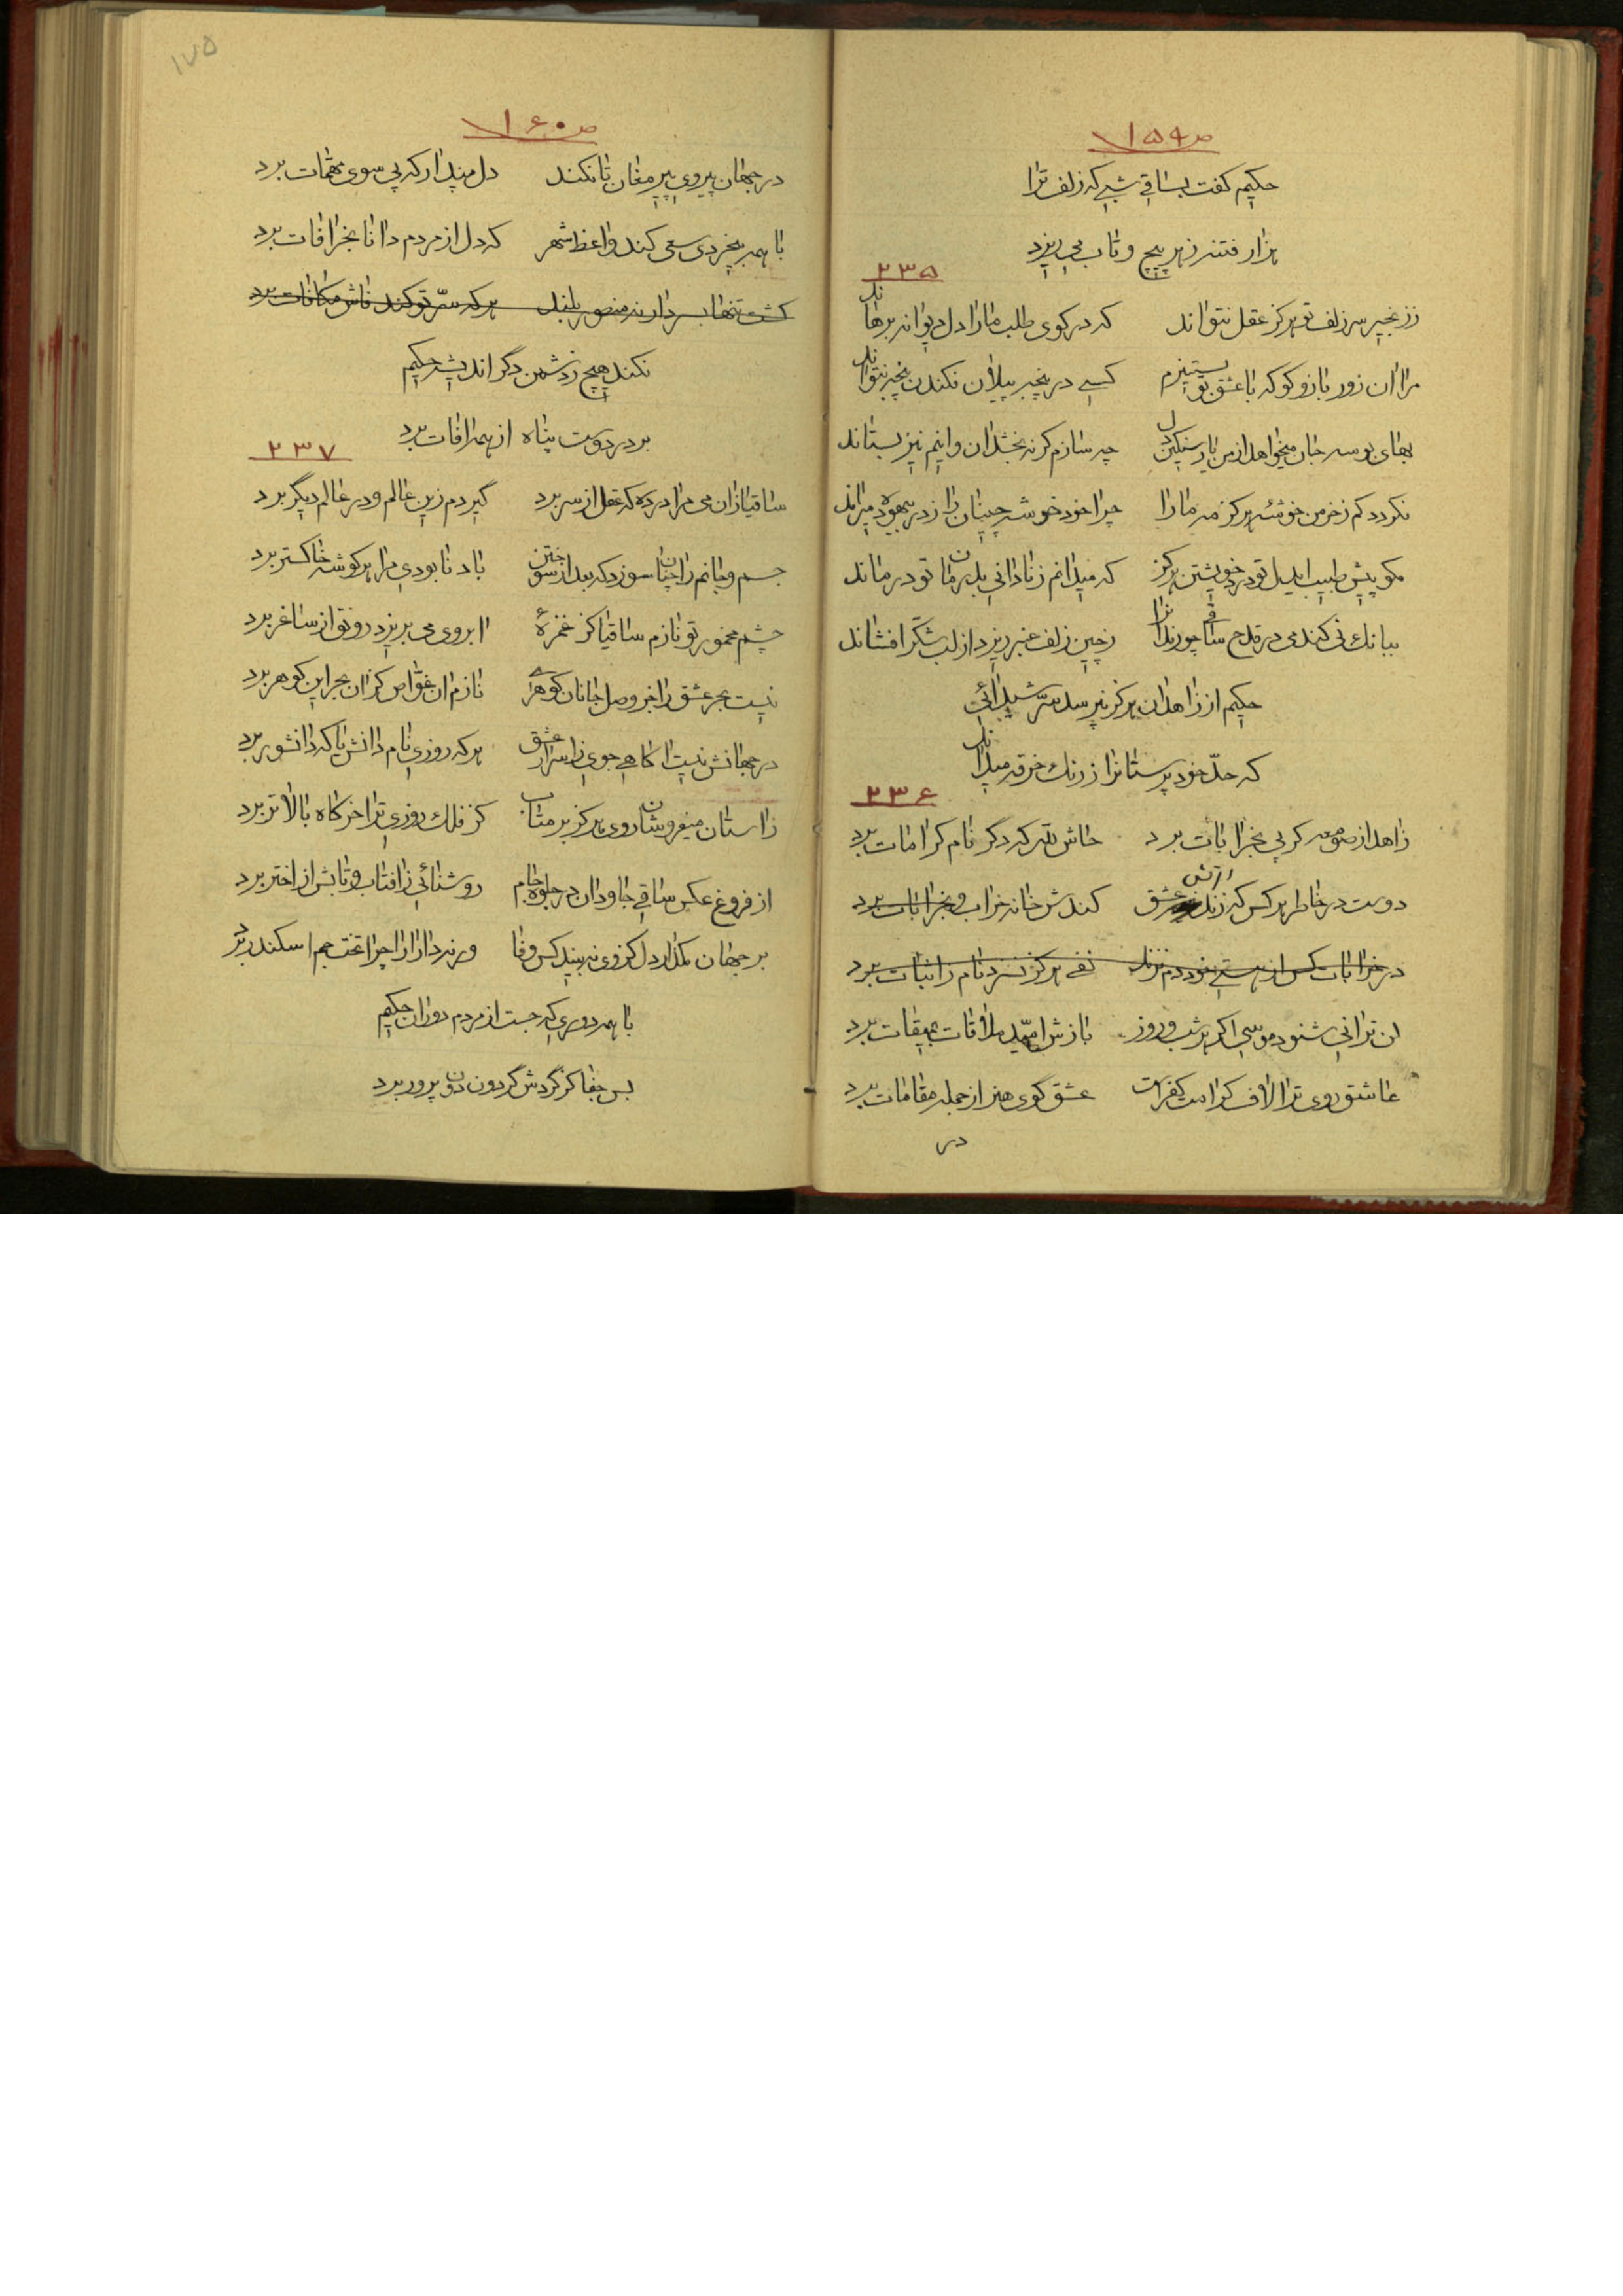 ص ۱۵۹
حکیم کفت بساقی شبی که زلف ترا
هزار فتنه ز هر پیچ و تاب می ریزد
۲۳۵
ز زنجیر سر زلف تو هرکز عقل نتواند که در کوی طلب ما را دل دیوانه برهاند
مرا ان زور بازو کو که با عشق تو بستیزم کسی در پنجه پیلان نکندن پنجه نتواند
بهای بوسه جان میخواهد از من یار سنکین دل چه سازم کر نه بخشد ان و اینم نیز بستاند
نکردد کم ز خرمن خوشه هرکز مه ما را چرا خود خوشه چینان را ز در بیهوده میراند
مکو پیش طبیب ایدل تو درد خویشتن هرکز که میدانم ز نادانی بدرمان تو درماند
ببانك نی کند می در قدح ساقی چو رندانرا ز چین زلف عنبر ریزد از لب شکر افشاند
حکیم از زاهدان هرکز نپرسد سر شیدائی
که حد خود پرستانرا ز رنك خرقه میداند
۲۳۶
زاهد از صومعه کر پی بخرابات برد حاش لله که دکر نام کرامات برد
دوست در خاطر هر کس که زند اتش عشق کندش خانه خراب و بخرابات برد
در خرابات کس از هستی خود دم نزند نفی هرکز نسزد نام ز اثبات برد
لن ترانی شنود موسی اکر هر شب و روز بازش امید ملاقات بمیقات برد
عاشق روی ترا لاف کرامت کفر است عشق کوی هنر از جمله مقامات برد
در
۱۷۵
ص ۱۶۰
در جهان پیروی پیر مغان تا نکند دل مپندار که پی سوی مهمات برد
با همه بیخردی سعی کند واعظ شهر که دل از مردم دانا بخرافات برد
کشت تنها بسر دار نه منصور بلند هر که سر تو کند فاش مکافات برد
نکند هیچ ز دشمن دکر اندیشه حکیم
بر در دوست پناه از همه افات برد
۲۳۷
ساقیا زان می مرا در ده که عقل از سر برد کیردم زین عالم و در عالم دیکر برد
جسم و جانم را چنان سوزد که بعد از سوختن باد نابودی مرا هر کوشه خاکستر برد
چشم مخمور تو نازم ساقیا کز غمزهٔ ابروی می بریزد رونق از ساغر برد
نیست بحر عشق را جز وصل جانان کوهری نازم ان غواص کز ان بحر این کوهر برد
در جهانش نیست اکاهی جوی ز اسرار عشق هر که روزی نام دانش یا که دانشور برد
ز استان میفروشان روی هرکز بر متاب کز فلك روزی ترا خرکاه بالاتر برد
از فروغ عکس ساقی جاودان در جلوه جام روشنائی ز افتاب و تابش از اختر برد
بر جهان مکذار دل کز وی نه بیند کس وفا ورنه دارا را چرا تخت جم اسکندر برد
با همه دوری که جست از مردم دوران حکیم
بس جفا کز کردش کردون دون پرور برد